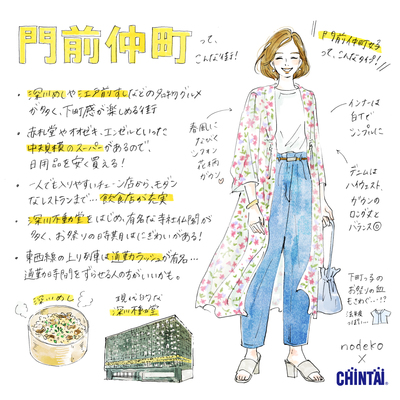 門前仲町 って、
こんな街!
・深川めしや江戸前すしなどのグルメ
が多く、下町感が楽しめる街
・赤札堂やオオゼキ、エンゼルといった
中規模のスーパーがあるので、
日用品を安く買える!
・一人でも入りやすいチェーン店から、モダン
なレストランまで…飲食店が充実
・深川不動堂をはじめ、有名な寺社仏閣が
多く、お祭りの時期はにぎわいがある!
・東西線の上り列車は通勤ラッシュが有名…
通勤時間をずらせる人の方がいいかも。
深川めし
現代的な
深川不動堂
門前仲町女子
って、こんなタイプ!
春風に
なびく
シフォン
花柄
ガウン
インナーは
白Tで
シンプルに
デニムは
ハイウエスト、
ガウンの
ロング丈と
バランス◎
下町っ子の
お祭りの血
もさわぐ…!?
nodeko
×
CHINTAI